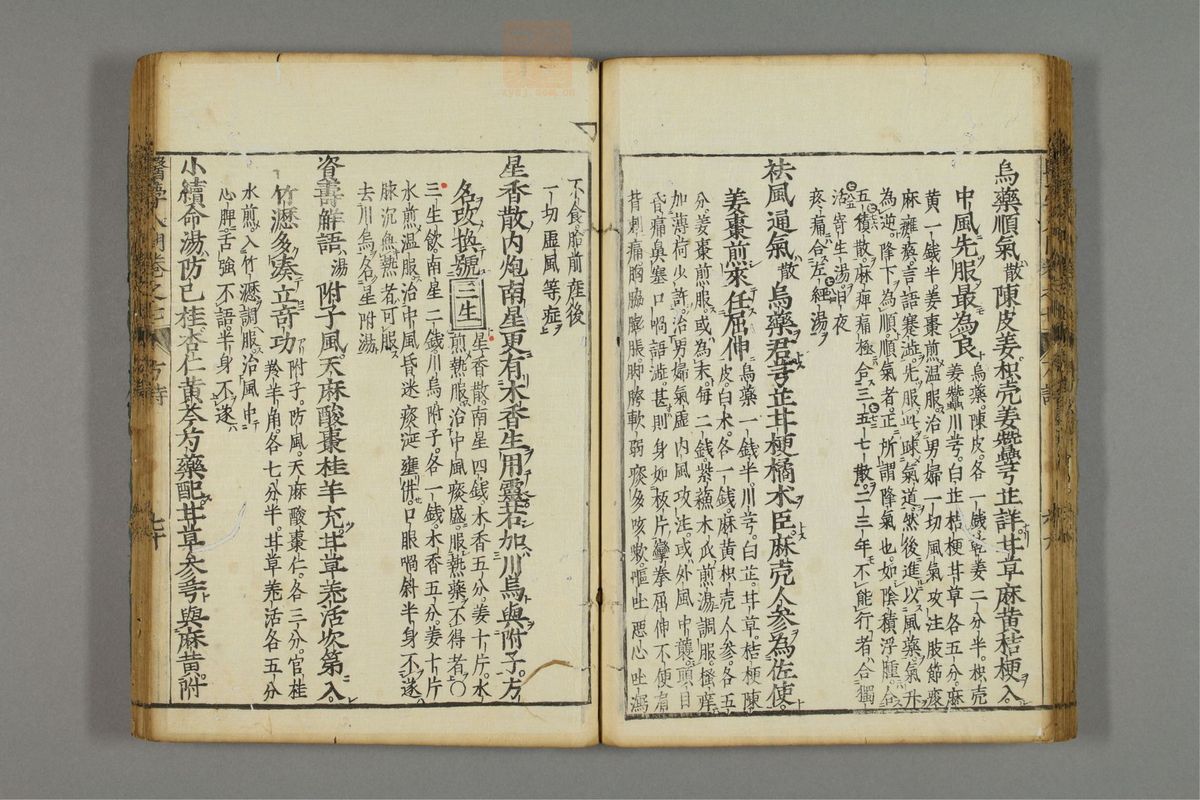 烏藥順氣散陳皮姜枳壳姜蠶芎芷詳甘草麻黄桔梗入
中風先服最為良烏藥陳皮各一錢乾姜二分半枳壳
姜蠶川芎白芷桔梗甘草各五分麻
黄一錢半姜棗煎温服治男婦一切風氣攻注肢節疼
麻癱瘓言語蹇澁先服此疎氣道然後進以風藥氣升
為逆降下為順順氣者正所謂降氣也如陰積浮腫合
五積散麻痺痛極合三五七散二三年不能行者合獨
活寄生湯日夜
疼痛合左經湯
袪風通氣散烏藥君芎芷甘梗橘术臣麻壳人參為佐使
姜棗煎來任屈伸烏藥一錢半川芎白芷甘草桔梗陳
皮白术各一錢麻黄枳壳人參各五
分姜棗煎服或為末每二錢紫蘓木瓜煎湯調服搔痒
加薄荷少許治男婦氣虛内風攻注或外風中襲頭目
昏痛鼻塞口喎語澁甚則身如板片攣拳屈伸不便肩
背刺痛胸脇膨脹脚膝軟弱痰多咳嗽嘔吐惡心吐瀉
不食胎前產後
一切虛風等症
星香散内炮南星更有木香生用靈若加川烏與附子方
名改換號三生星香散南星四錢木香五分姜十片水
煎熱服治中風痰盛服熱藥不得者〇
三生飲南星二錢川烏附子各一錢木香五分姜十片
水煎温服治中風昏迷痰涎壅併口眼喎斜半身不遂
脉沉無熱者可服
去川烏名星附湯
資壽解語湯附子風天麻酸棗桂羊充甘草羗活次第入
竹瀝多湊立奇功附子防風天麻酸棗仁各三分官桂
羚羊角各七分半甘草羗活各五分
水煎入竹瀝調服治風中
心脾舌強不語半身不遂
小續命湯防已桂杏仁黄芩芍藥配甘草參芎與麻黄附